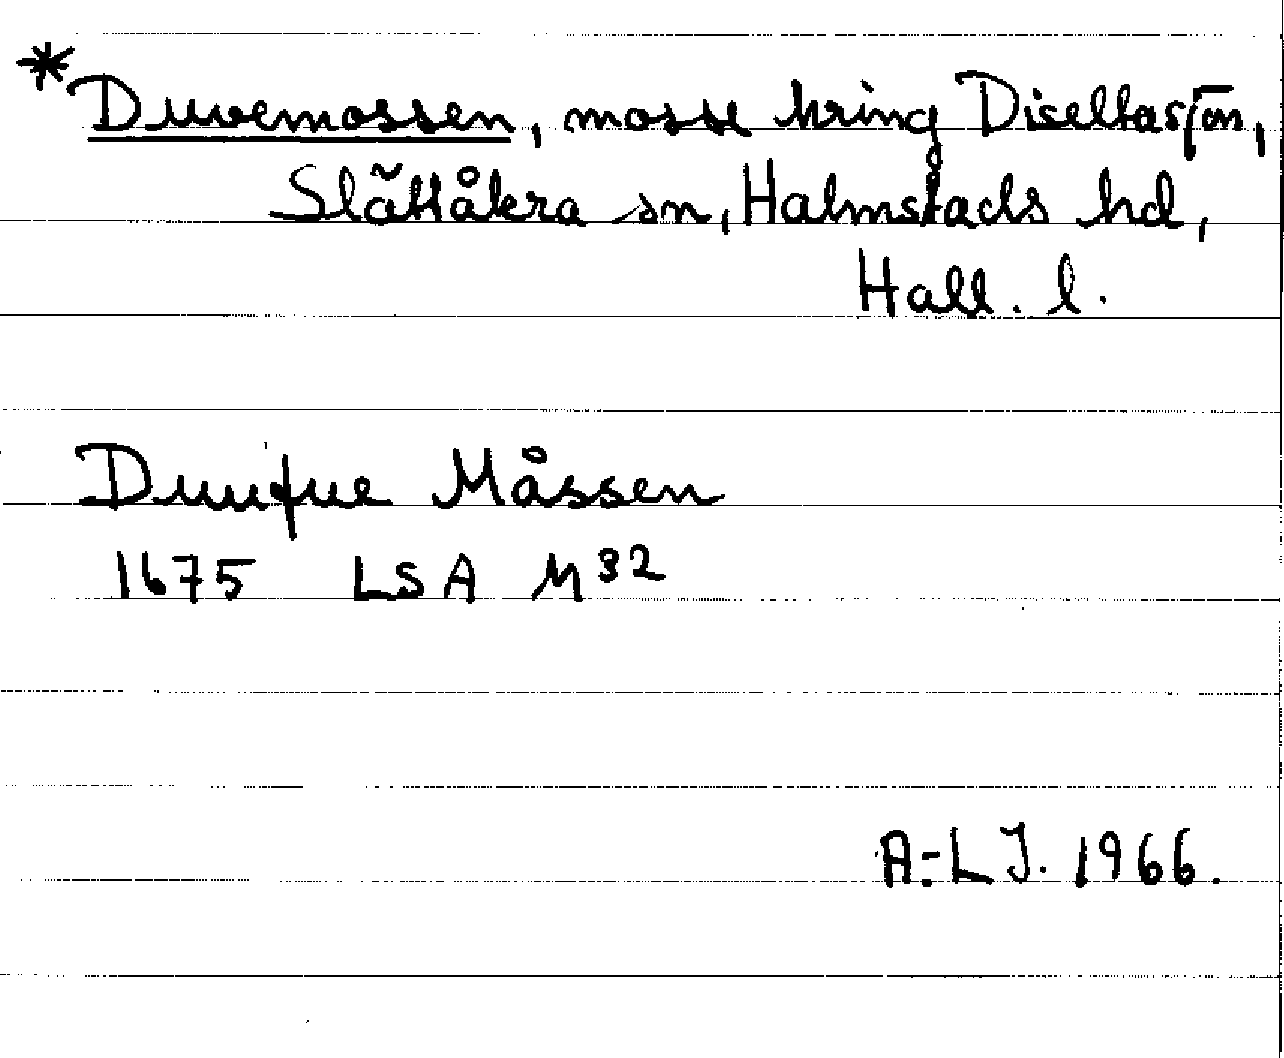 *Duvemossen, mosse kring Diseltasjön,
Slättåkra sn, Halmstads hd,
Hall. l.
Duufue Måssen
1675 LSA M32
A-L J. 1966.